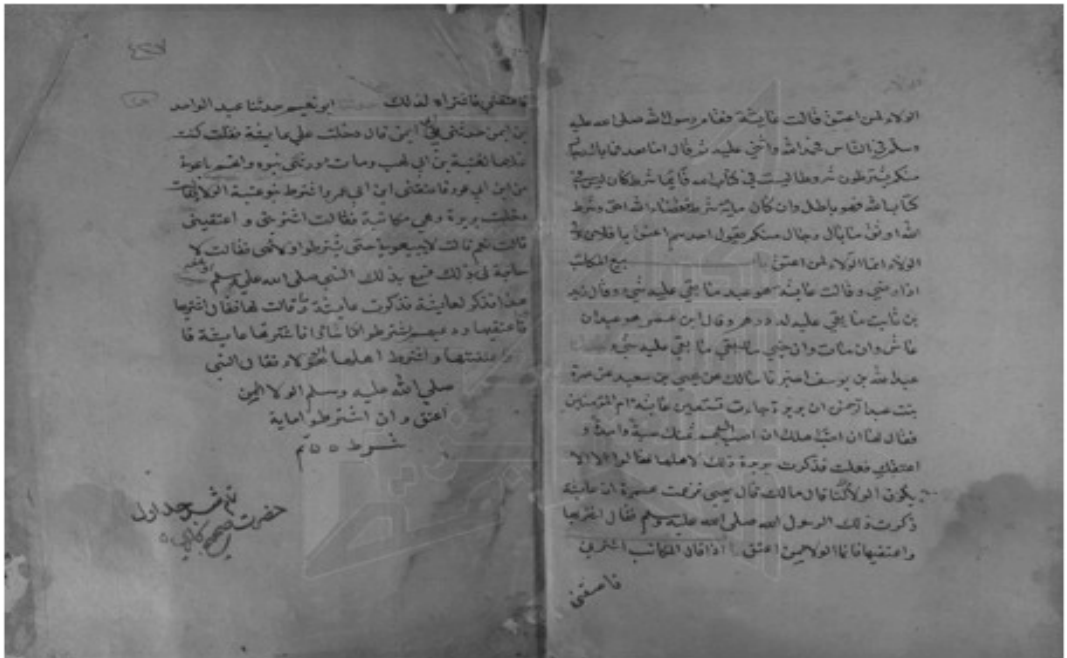 الولاء لمن اعتق قالت عايشة فقام رسول الله صلى الله عليه
وسلم في الناس فحمد الله واثنى عليه ثم قال اما بعد فما بال رجال
منكم يشترطون شروطا ليست في كتاب الله فأيما شرط كان ليس في
كتاب الله فهو باطل وان كان ماية شرط فقضاء الله احق وشرط
الله اوثق ما بال رجال منكم يقول احدهم اعتق يا فلان ولي
الولاء انما الولاء لمن اعتق باب بيع المكاتب
اذا رضي وقالت عايشة هو عبد ما بقي عليه شيء وقال زيد
بن ثابت ما بقي عليه درهم وقال ابن عمر هو عبد ان
عاش وان مات وان جنى ما بقي عليه شيء
عبد الله بن يوسف اخبرنا مالك عن يحيى بن سعيد عن عمرة
بنت عبد الرحمن ان بريرة جاءت تستعين عايشة ام المؤمنين
فقال لها ان احب اهلك ان اصب لهم ثمنك صبة واحدة و
اعتقك فعلت فذكرت بريرة ذلك لاهلها فقالوا لا الا
يكون الولاء لنا قال مالك قال يحيى فزعمت عمرة ان عايشة
ذكرت ذلك لرسول الله صلى الله عليه وسلم فقال اشتريها
واعتقيها فانما الولا لمن اعتق باب اذا قال المكاتب اشترني
فاعتقني
فاعتقني فاشتراه لذلك ابو نعيم حدثنا عبد الواحد
بن ايمن حدثني ابي ايمن قال دخلت على عايشة فقلت كنت
غلاما لعتبة بن ابي لهب ومات وورثني بنوه وانهم باعوه
من ابن ابي عمرو فاعتقني ابن ابي عمرو اشترط بنو عتبة الولا فقالت
دخلت بريرة وهي مكاتبة فقالت اشتريني واعتقيني
قالت نعم قالت لا يبيعوني حتى يشترطوا ولائي فقالت لا
حاجة لي بذلك فسمع بذلك النبي صلى الله عليه وسلم او بلغه
فذكر لعايشة فذكرت عايشة ما قالت لها فقال اشتريها
فاعتقيها ودعيهم يشترطوا ما شاءوا فاشترتها عايشة فا
عتقتها واشترط اهلها الولاء فقال النبي
صلى الله عليه وسلم الولا لمن
اعتق وان اشترطوا ماية
شرط تم
تم جلد اول
حضرت صحيح